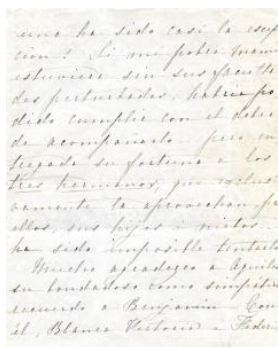 una ha sido casi la excep
cion! Si mi pobre mama
estuviera sin sus faculta
des perturbadas, habria po
dido cumplir con el deber
de acompañarla. pero en
tregada su fortuna a los
tres hermanos, que esclusi
vamente la aprovechan pa
ellos, sus hijos y nietos.
ha sido imposible
Mucho agradezco a
su bondadoso como simpático
recuerdo a Benjamin
él, Blanca Victoria i Federi